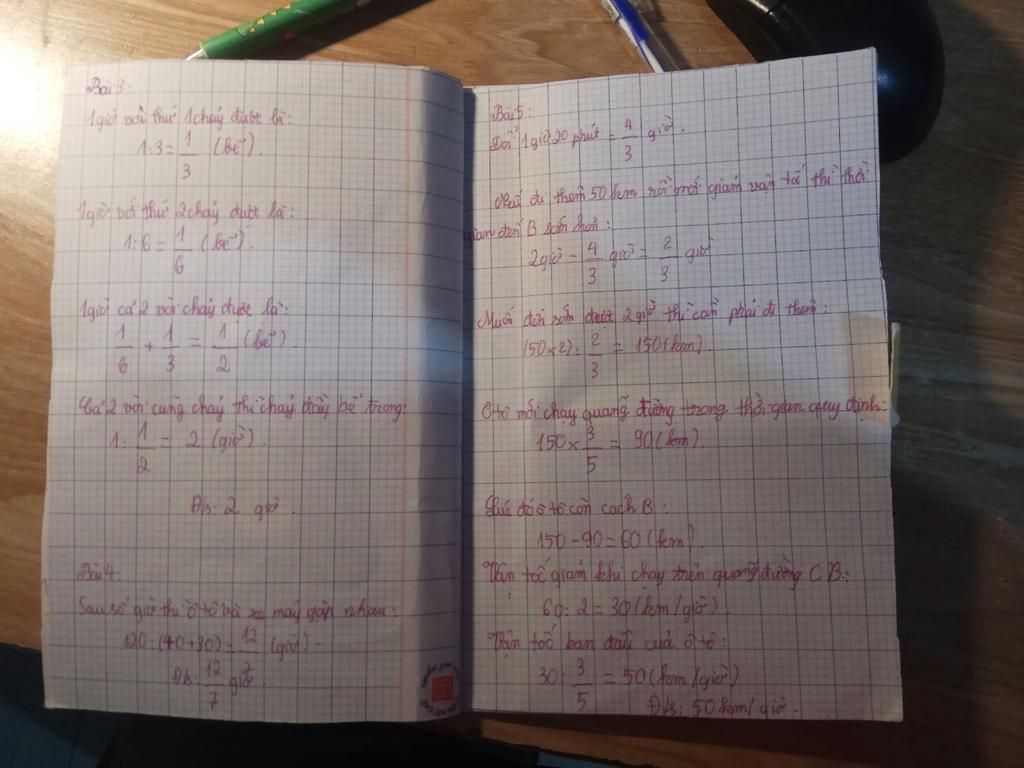 Bài 3:
1 giờ vòi thứ 1 chảy được là:
1:3 = 1/3 (bể).
1 giờ vòi thứ 2 chảy được là:
1:6 = 1/6 (bể).
1 giờ cả 2 vòi chảy được là:
1/6 + 1/3 = 1/2 (bể).
Cả 2 vòi cùng chảy thì chảy đầy bể trong:
1: 1/2 = 2 (giờ).
Đ/s: 2 giờ.
Bài 4:
Sau số giờ thì ô tô và xe máy gặp nhau:
120:(40+30) = 12/7 (giờ)
Đ/s: 12/7 giờ.
Bài 5:
Đổi 1 giờ 20 phút = 4/3 giờ.
Nếu đi thêm 50 km rồi mới giảm vận tố thì thời
gian đến B sớm hơn:
2 giờ - 4/3 giờ = 2/3 giờ
Muốn đến sớm được 2 giờ thì cần phải đi thêm:
(50×2): 2/3 = 150 (km).
Ô tô mới chạy quãng đường trong thời gian quy định:
150 × 3/5 = 90 (km).
Lúc đó ô tô còn cách B:
150 - 90 = 60 (km).
Vận tốc giảm khi chạy trên quãng đường CB:
60: 2 = 30 (km/giờ).
Vận tốc ban đầu của ô tô:
30: 3/5 = 50 (km/giờ)
Đ/s: 50 km/giờ.